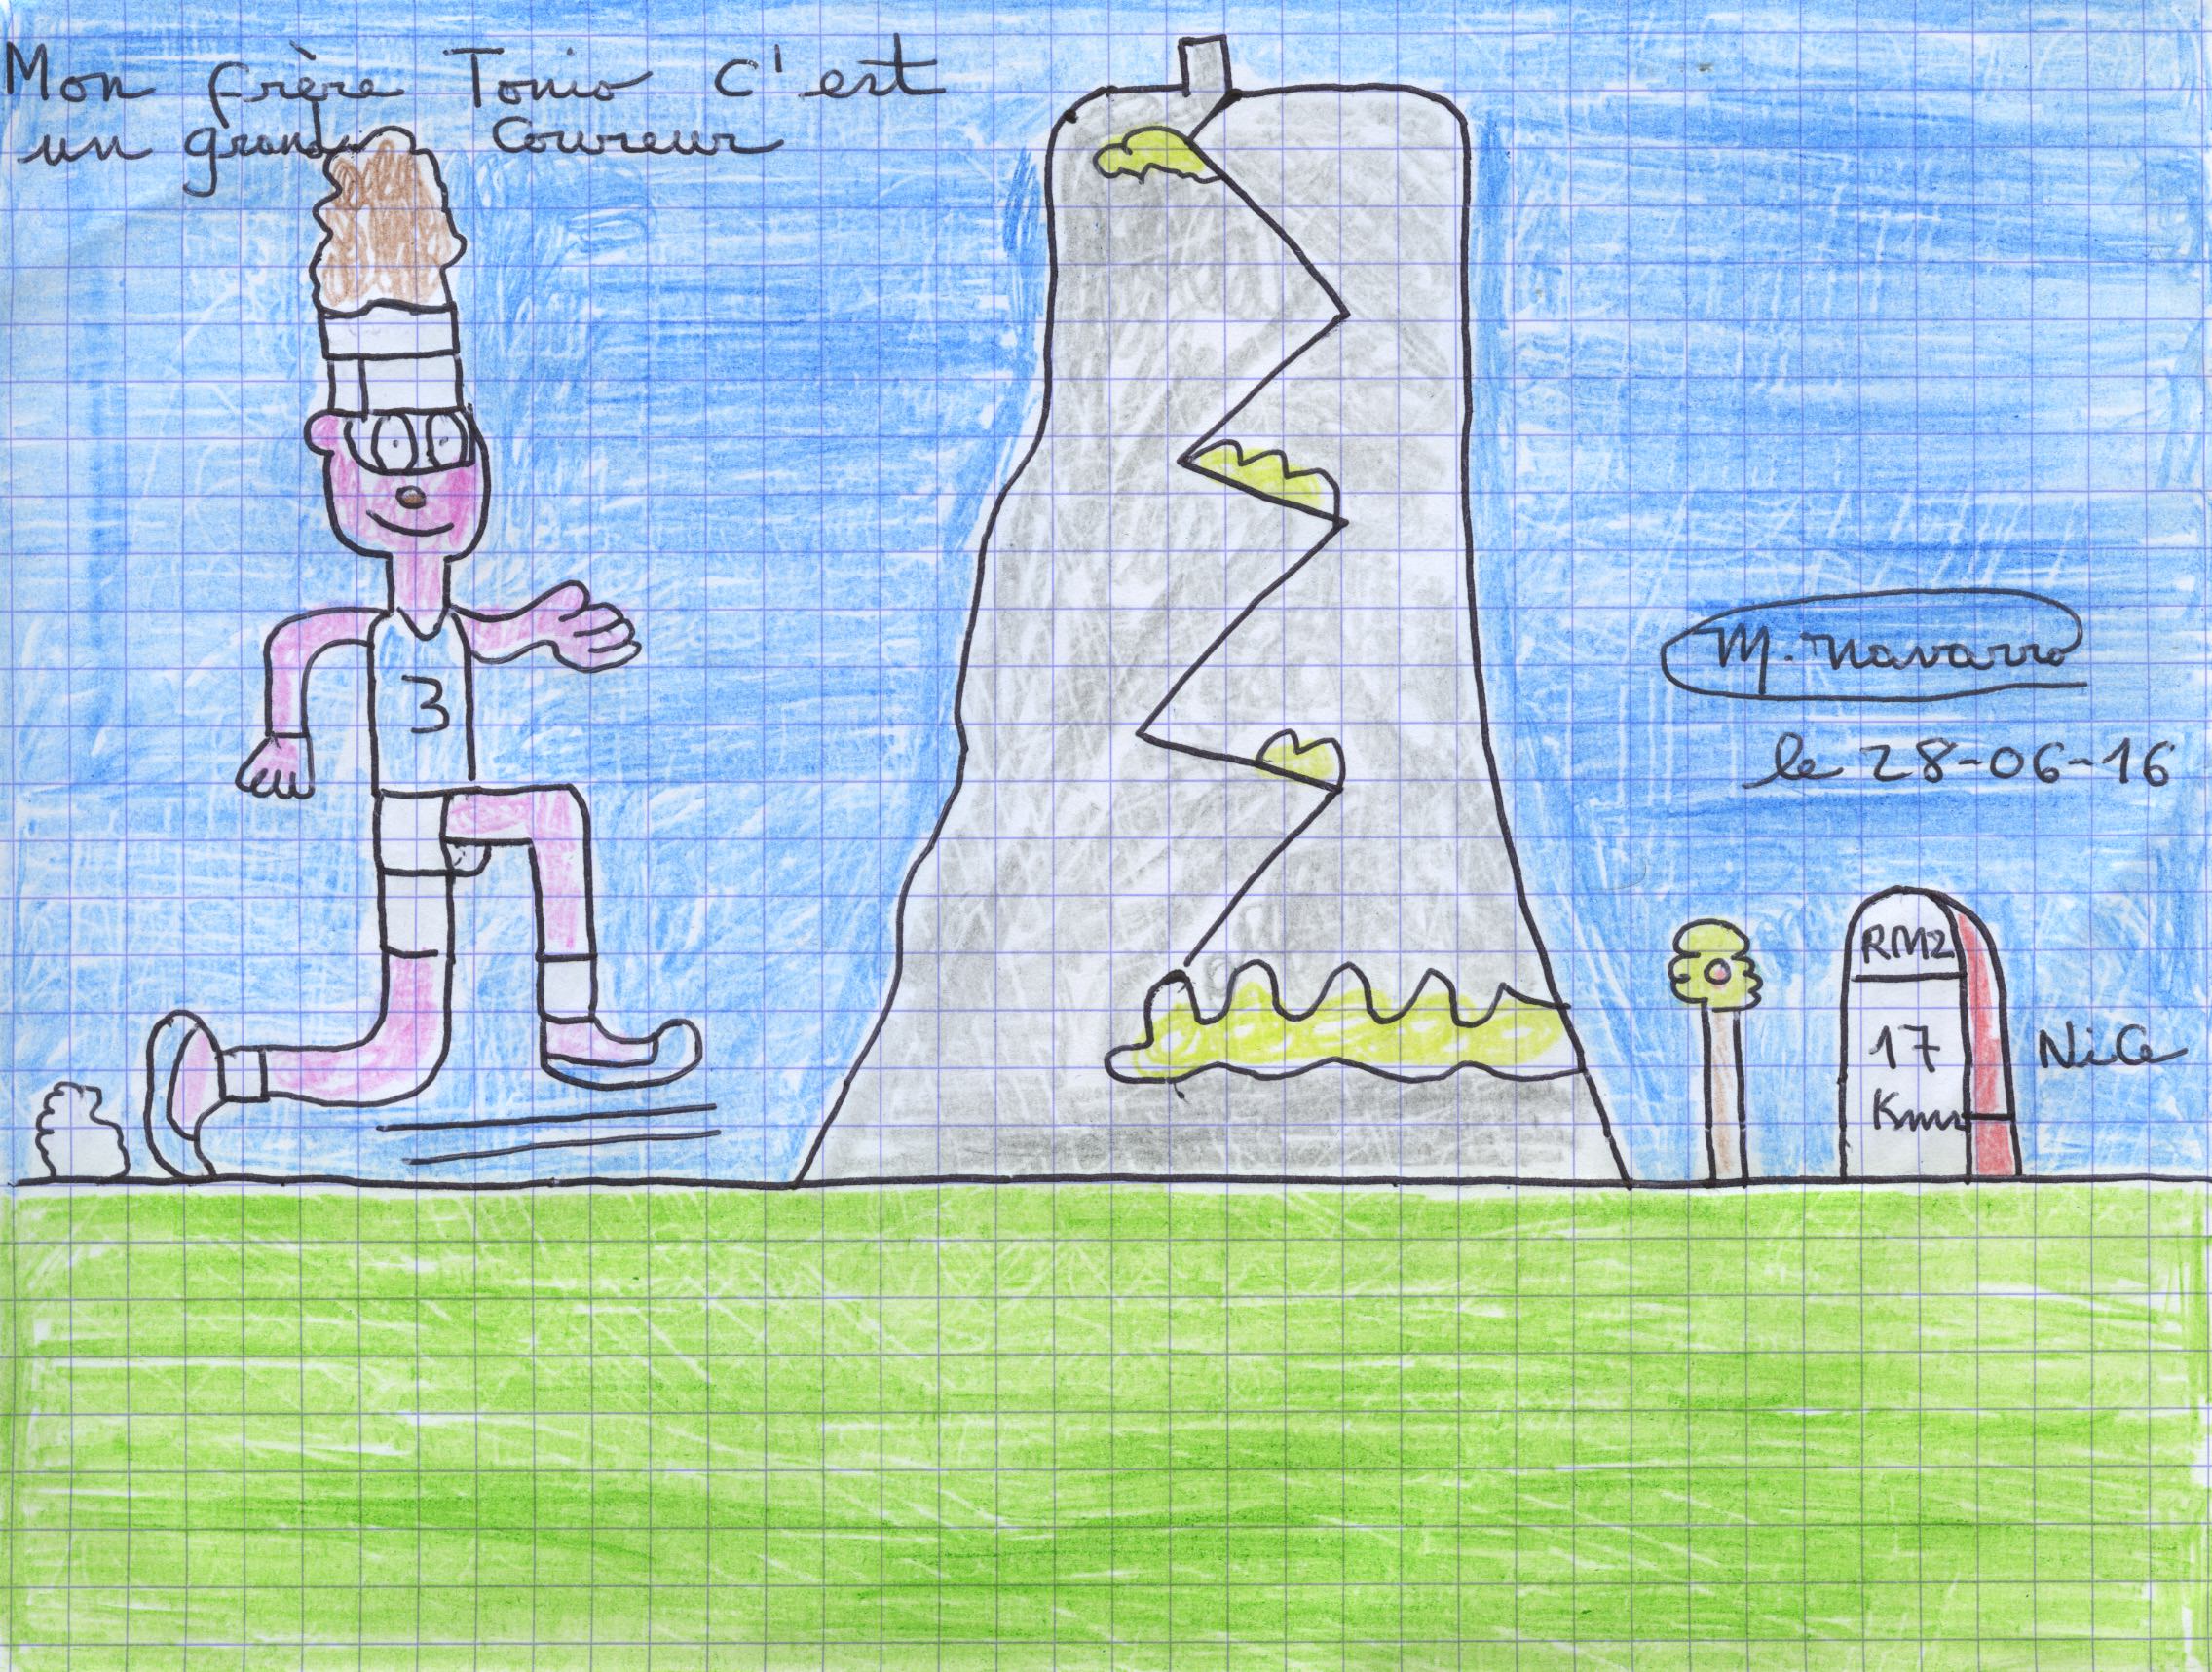 Mon frère Tonio c'est
un grand coureur
3
M. Navarro
le 28-06-16
RM2
17
Km
Nice